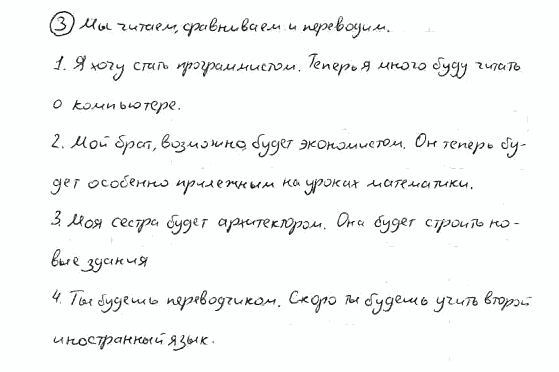 ③ Мы читаем, сравниваем и переводим.
1. Я хочу стать программистом. Теперь я много буду читать
о компьютере.
2. Мой брат, возможно, будет экономистом. Он теперь бу-
дет особенно прилежным на уроках математики.
3. Моя сестра будет архитектором. Она будет строить но-
вые здания
4. Ты будешь переводчиком. Скоро ты будешь учить второй
иностранный язык.